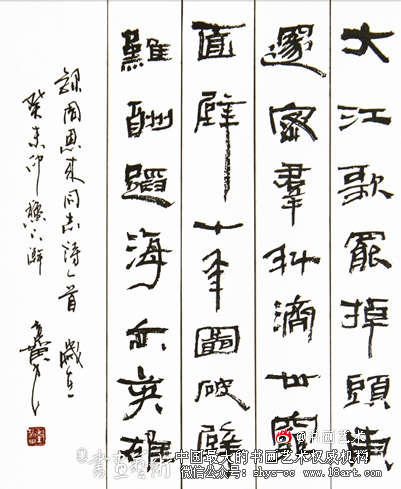 大江歌罷掉頭東
邃密羣科濟世窮
面壁十年圖破壁
難酬蹈海亦英雄
錄周恩來同志詩一首 歲在
癸未
@书画艺术
书画艺术
中国最大的书画艺术权威机构
微信公众号: shys-cc www.18art.com